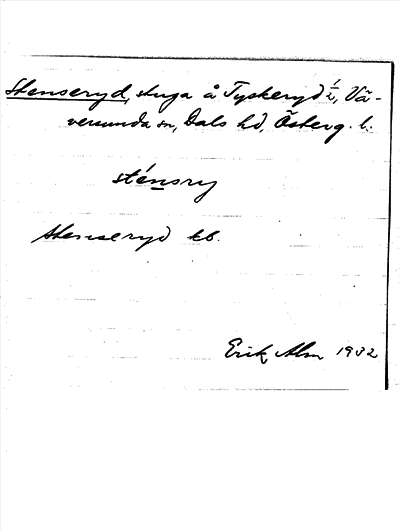 Stenseryd, stuga å Tyskeryd 1/2, Vä-
versunda sn, Dals hd, Österg. l.
sténsry
Stenseryd kb.
Erik Alm 1932